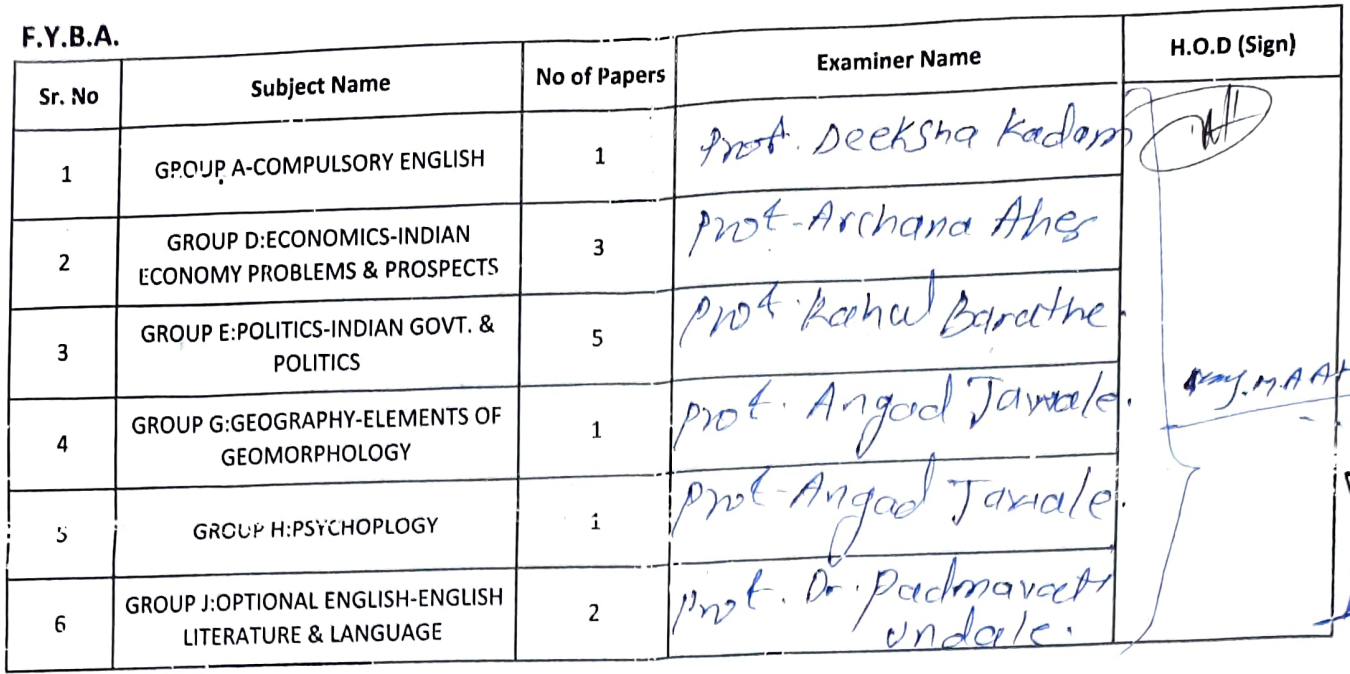 F.Y.B.A.
Sr. No Subject Name No of Papers Examiner Name H.O.D (Sign)
1 GROUP A-COMPULSORY ENGLISH 1 Prof. Deeksha Kadam
2 GROUP D:ECONOMICS-INDIAN
ECONOMY PROBLEMS & PROSPECTS 3 Prof-Archana Aher
3 GROUP E:POLITICS-INDIAN GOVT. &
POLITICS 5 Prof. Rahul Barathe.
4 GROUP G:GEOGRAPHY-ELEMENTS OF
GEOMORPHOLOGY 1 Prof. Angad Jawale.
5 GROUP H:PSYCHOPLOGY 1 Prof-Angad Jawale.
6 GROUP J:OPTIONAL ENGLISH-ENGLISH
LITERATURE & LANGUAGE 2 Prof. Dr. Padmavati
Undale.